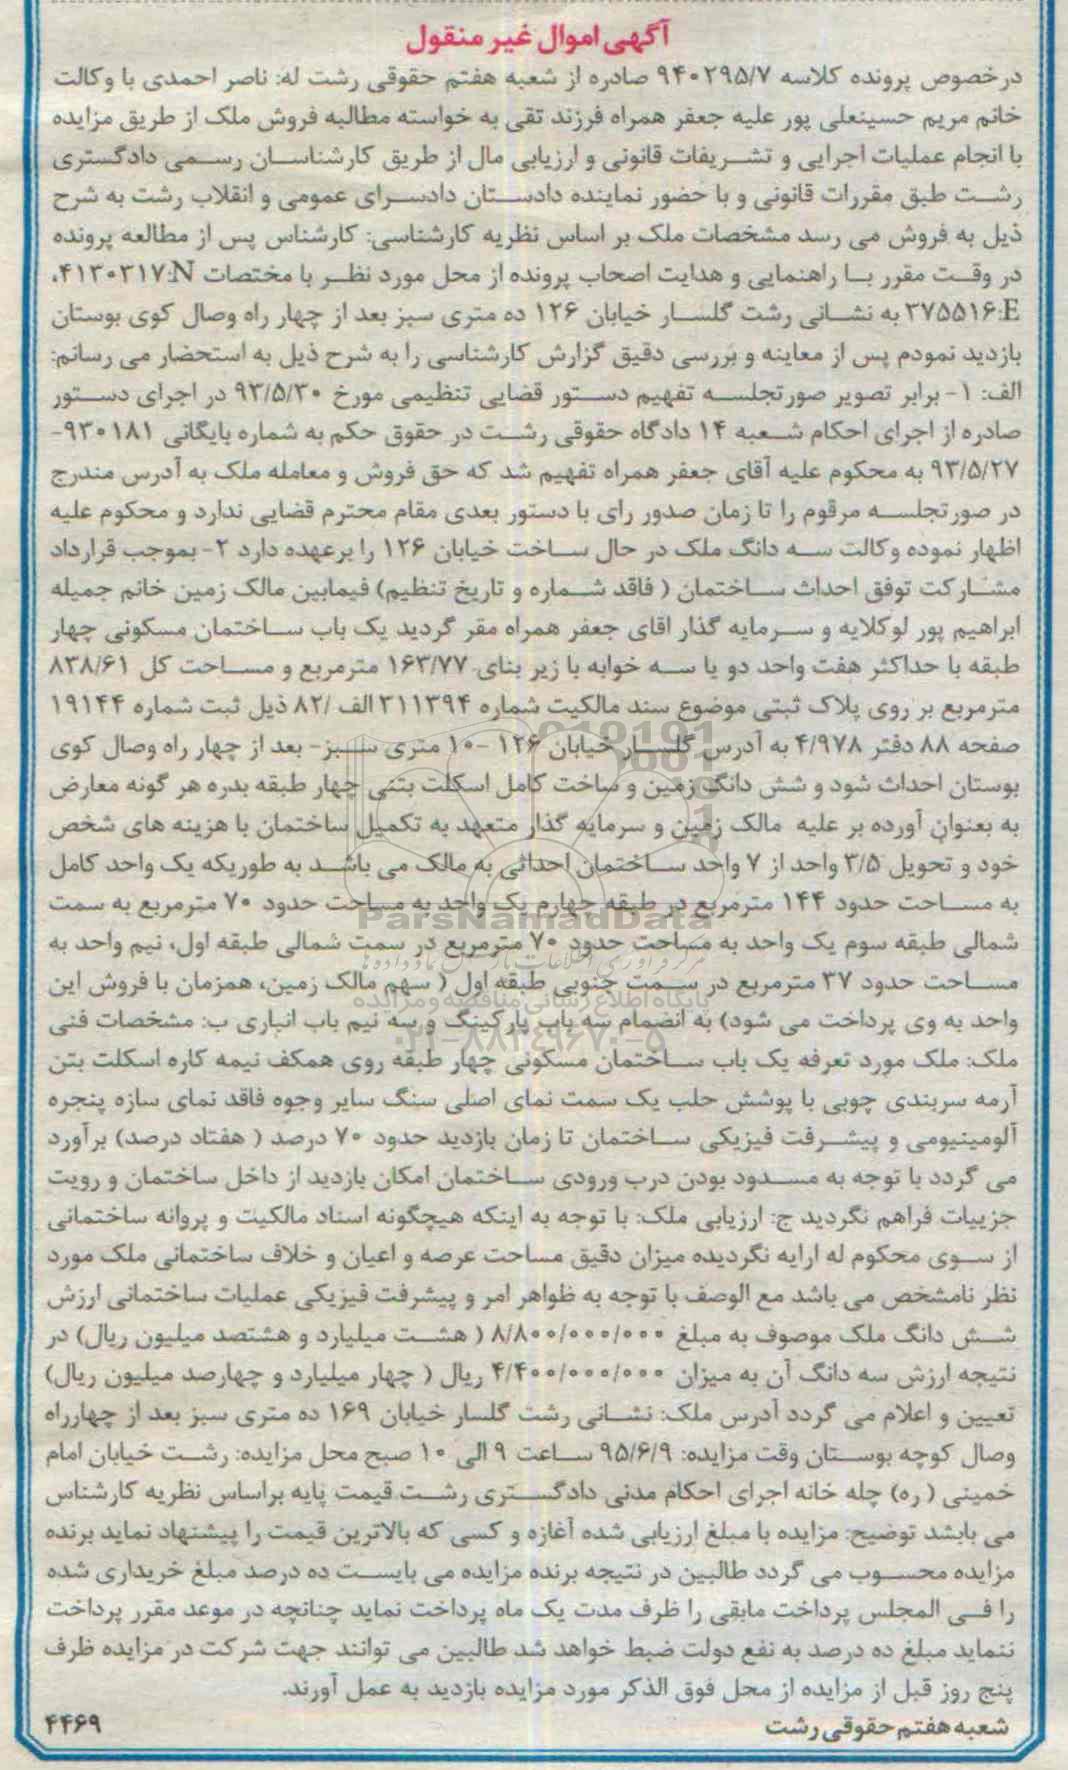 آگهی اموال غیر منقول
درخصوص پرونده کلاسه ۹۴۰۲۹۵/۷ صادره از شعبه هفتم حقوقی رشت له: ناصر احمدی با وکالت
خانم مریم حسینعلی پور علیه جعفر همراه فرزند تقی به خواسته مطالبه فروش ملک از طریق مزایده
با انجام عملیات اجرایی و تشریفات قانونی و ارزیابی مال از طریق کارشناسان رسمی دادگستری
رشت طبق مقررات قانونی و با حضور نماینده دادستان دادسرای عمومی و انقلاب رشت به شرح
ذیل به فروش می رسد مشخصات ملک بر اساس نظریه کارشناسی: کارشناس پس از مطالعه پرونده
در وقت مقرر با راهنمایی و هدایت اصحاب پرونده از محل مورد نظر با مختصات ۴۱۳۰۳۱۷:N،
۳۷۵۵۱۶:E به نشانی رشت گلسار خیابان ۱۲۶ ده متری سبز بعد از چهار راه وصال کوی بوستان
بازدید نمودم پس از معاینه و بررسی دقیق گزارش کارشناسی را به شرح ذیل به استحضار می رسانم:
الف: ۱- برابر تصویر صورتجلسه تفهیم دستور قضایی تنظیمی مورخ ۹۳/۵/۳۰ در اجرای دستور
صادره از اجرای احکام شعبه ۱۴ دادگاه حقوقی رشت در حقوق حکم به شماره بایگانی ۹۳۰۱۸۱-
۹۳/۵/۲۷ به محکوم علیه آقای جعفر همراه تفهیم شد که حق فروش و معامله ملک به آدرس مندرج
در صورتجلسه مرقوم را تا زمان صدور رای با دستور بعدی مقام محترم قضایی ندارد و محکوم علیه
اظهار نموده وکالت سه دانگ ملک در حال ساخت خیابان ۱۲۶ را برعهده دارد ۲- بموجب قرارداد
مشارکت توفق احداث ساختمان ( فاقد شماره و تاریخ تنظیم) فیمابین مالک زمین خانم جمیله
ابراهیم پور لوکلایه و سرمایه گذار اقای جعفر همراه مقر گردید یک باب ساختمان مسکونی چهار
طبقه با حداکثر هفت واحد دو یا سه خوابه با زیر بنای ۱۶۳/۷۷ مترمربع و مساحت کل ۸۳۸/۶۱
مترمربع بر روی پلاک ثبتی موضوع سند مالکیت شماره ۳۱۱۳۹۴ الف /۸۲ ذیل ثبت شماره ۱۹۱۴۴
صفحه ۸۸ دفتر ۴/۹۷۸ به آدرس گلسار خیابان ۱۲۶ -۱۰ متری سبز- بعد از چهار راه وصال کوی
بوستان احداث شود و شش دانگ زمین و ساخت کامل اسکلت بتنی چهار طبقه بدره هر گونه معارض
به بعنوان آورده بر علیه مالک زمین و سرمایه گذار متعهد به تکمیل ساختمان با هزینه های شخص
خود و تحویل ۳/۵ واحد از ۷ واحد ساختمان احداثی به مالک می باشد به طوریکه یک واحد کامل
به مساحت حدود ۱۴۴ مترمربع در طبقه چهارم یک واحد به مساحت حدود ۷۰ مترمربع به سمت
شمالی طبقه سوم یک واحد به مساحت حدود ۷۰ مترمربع در سمت شمالی طبقه اول، نیم واحد به
مساحت حدود ۳۷ مترمربع در سمت جنوبی طبقه اول ( سهم مالک زمین، همزمان با فروش این
واحد به وی پرداخت می شود) به انضمام سه باب پارکینگ و سه نیم باب انباری ب: مشخصات فنی
ملک: ملک مورد تعرفه یک باب ساختمان مسکونی چهار طبقه روی همکف نیمه کاره اسکلت بتن
آرمه سربندی چوبی با پوشش حلب یک سمت نمای اصلی سنگ سایر وجوه فاقد نمای سازه پنجره
آلومینیومی و پیشرفت فیزیکی ساختمان تا زمان بازدید حدود ۷۰ درصد ( هفتاد درصد) برآورد
می گردد با توجه به مسدود بودن درب ورودی ساختمان امکان بازدید از داخل ساختمان و رویت
جزییات فراهم نگردید ج: ارزیابی ملک: با توجه به اینکه هیچگونه اسناد مالکیت و پروانه ساختمانی
از سوی محکوم له ارایه نگردیده میزان دقیق مساحت عرصه و اعیان و خلاف ساختمانی ملک مورد
نظر نامشخص می باشد مع الوصف با توجه به ظواهر امر و پیشرفت فیزیکی عملیات ساختمانی ارزش
شش دانگ ملک موصوف به مبلغ ۸/۸۰۰/۰۰۰/۰۰۰ ( هشت میلیارد و هشتصد میلیون ریال) در
نتیجه ارزش سه دانگ آن به میزان ۴/۴۰۰/۰۰۰/۰۰۰ ریال ( چهار میلیارد و چهارصد میلیون ریال)
تعیین و اعلام می گردد آدرس ملک: نشانی رشت گلسار خیابان ۱۶۹ ده متری سبز بعد از چهارراه
وصال کوچه بوستان وقت مزایده: ۹۵/۶/۹ ساعت ۹ الی ۱۰ صبح محل مزایده: رشت خیابان امام
خمینی (ره) چله خانه اجرای احکام مدنی دادگستری رشت قیمت پایه براساس نظریه کارشناس
می بابشد توضیح: مزایده با مبلغ ارزیابی شده آغازه و کسی که بالاترین قیمت را پیشنهاد نماید برنده
مزایده محسوب می گردد طالبین در نتیجه برنده مزایده می بایست ده درصد مبلغ خریداری شده
را فی المجلس پرداخت مابقی را ظرف مدت یک ماه پرداخت نماید چنانچه در موعد مقرر پرداخت
ننماید مبلغ ده درصد به نفع دولت ضبط خواهد شد طالبین می توانند جهت شرکت در مزایده ظرف
پنج روز قبل از مزایده از محل فوق الذکر مورد مزایده بازدید به عمل آورند.
شعبه هفتم حقوقی رشت
۴۴۶۹
ParsNamadData
پایگاه اطلاع رسانی مناقصه و مزایده
۰۲۱-۸۸۳۴۹۶۷۰-۵